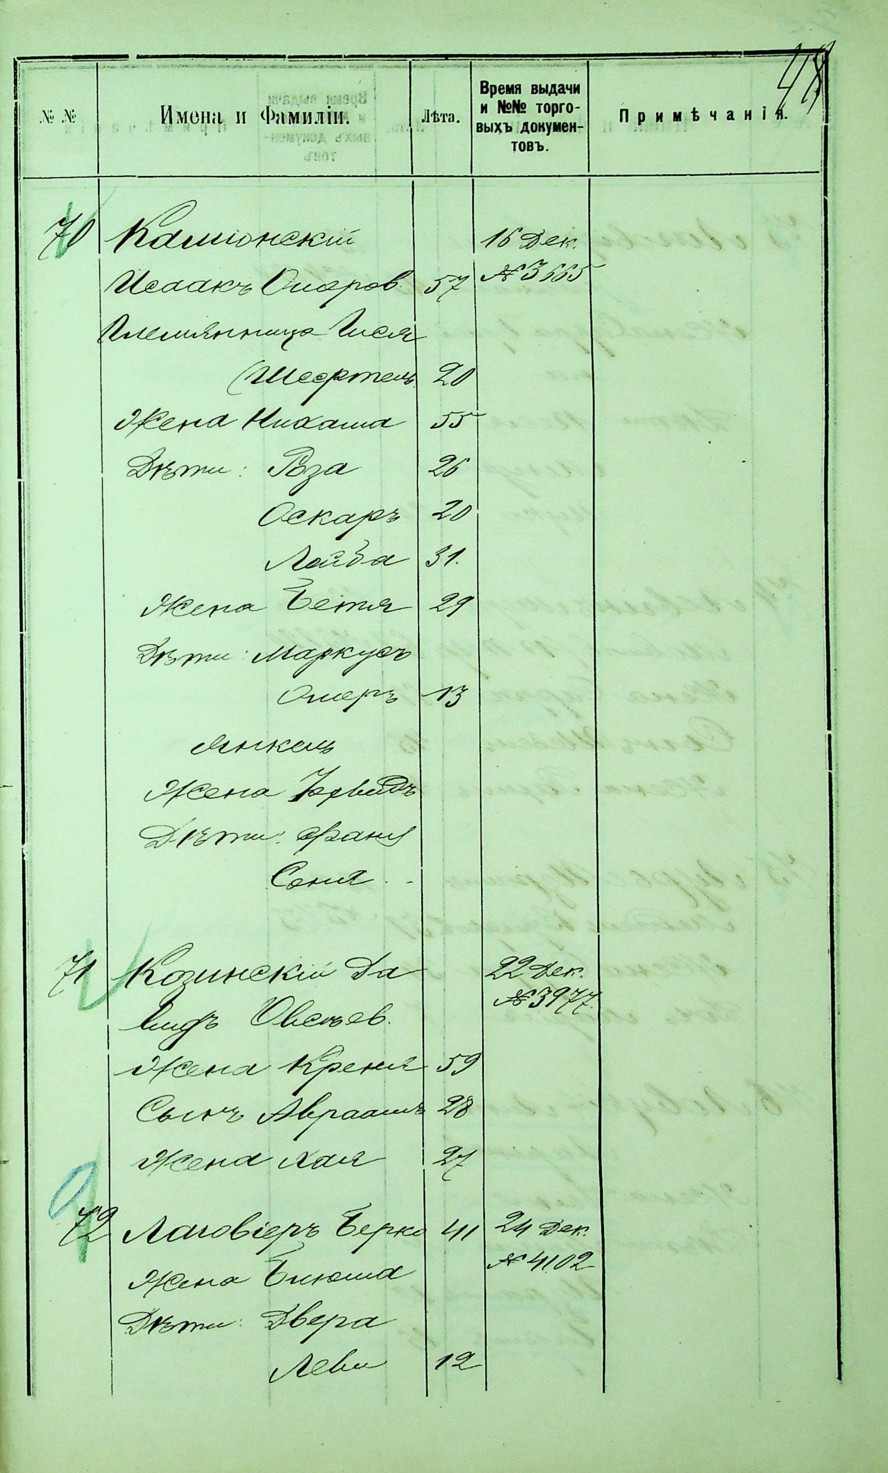 48
№ №
Имена и Фамиліи.
Лѣта.
Время выдачи
и №№ торго-
выхъ докумен-
товъ.
Примѣчанія.
70 Камионскій 16 Дек.
Исаакъ Омеров 57 № 3665
Племянница Гися
20
Жена 55
Дѣти: Роза 26
Оскаръ 20
Лейба 31.
Жена Бетя 29
Дѣти: Маркусъ
Омеръ 13
Янкель
Жена
Дѣти: Фаня
Соня
71 Козинскій Да 22 Дек.
видъ Овсѣев. № 3977
Жена Креня 59
Сынъ Авраамъ 28
Жена Хая 27
72 Ломовіеръ Берко 41 24 Дек.
Жена № 4102
Дѣти: Двера
Леви 12